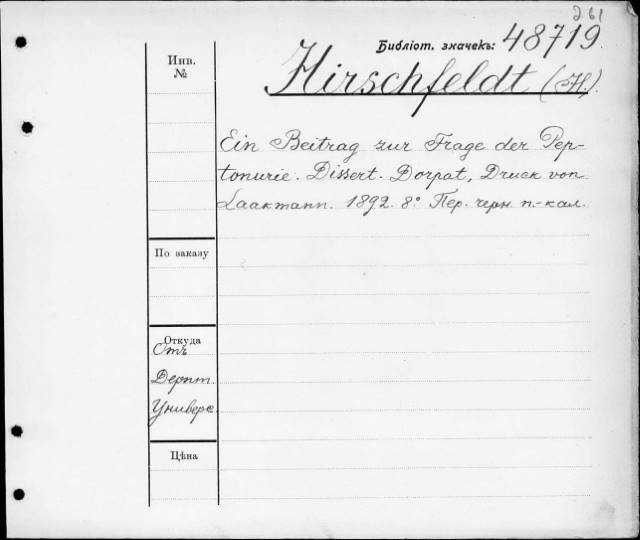 261
Библіот. значекъ: 48719
Hirschfeldt (H.).
Инв.
№
Ein Beitrag zur Frage der Pep-
tonurie. Dissert. Dorpat, Druck von
Laakmann. 1892. 8º Пер. черн. п.-кал.
По заказу
Откуда
Отъ
Дерпт.
Универс
Цѣна